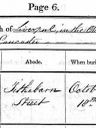 Page 6.
h of Liverpool, in the
Lancaster
Abode. When buri
Tithebarn Octob
Street 18th